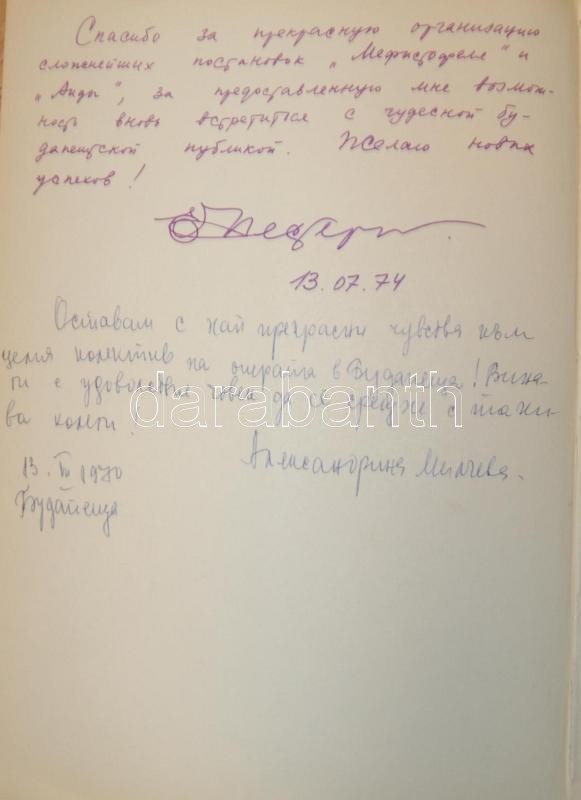 Спасибо за прекрасную организацию
сложнейших постановок „Мефистофеле" и
„Аиды", за предоставленную мне возмож-
ность вновь встретиться с чудесной бу-
дапештской публикой. Желаю новых
успехов!
13.07.74
Оставам с най прекрасни чувства към
целия колектив на операта в Будапеща! Вина-
ги с удоволствие човек да се среща с таки-
ва
darabanth
13. III 1970
Александрина Милчева.
Будапеща